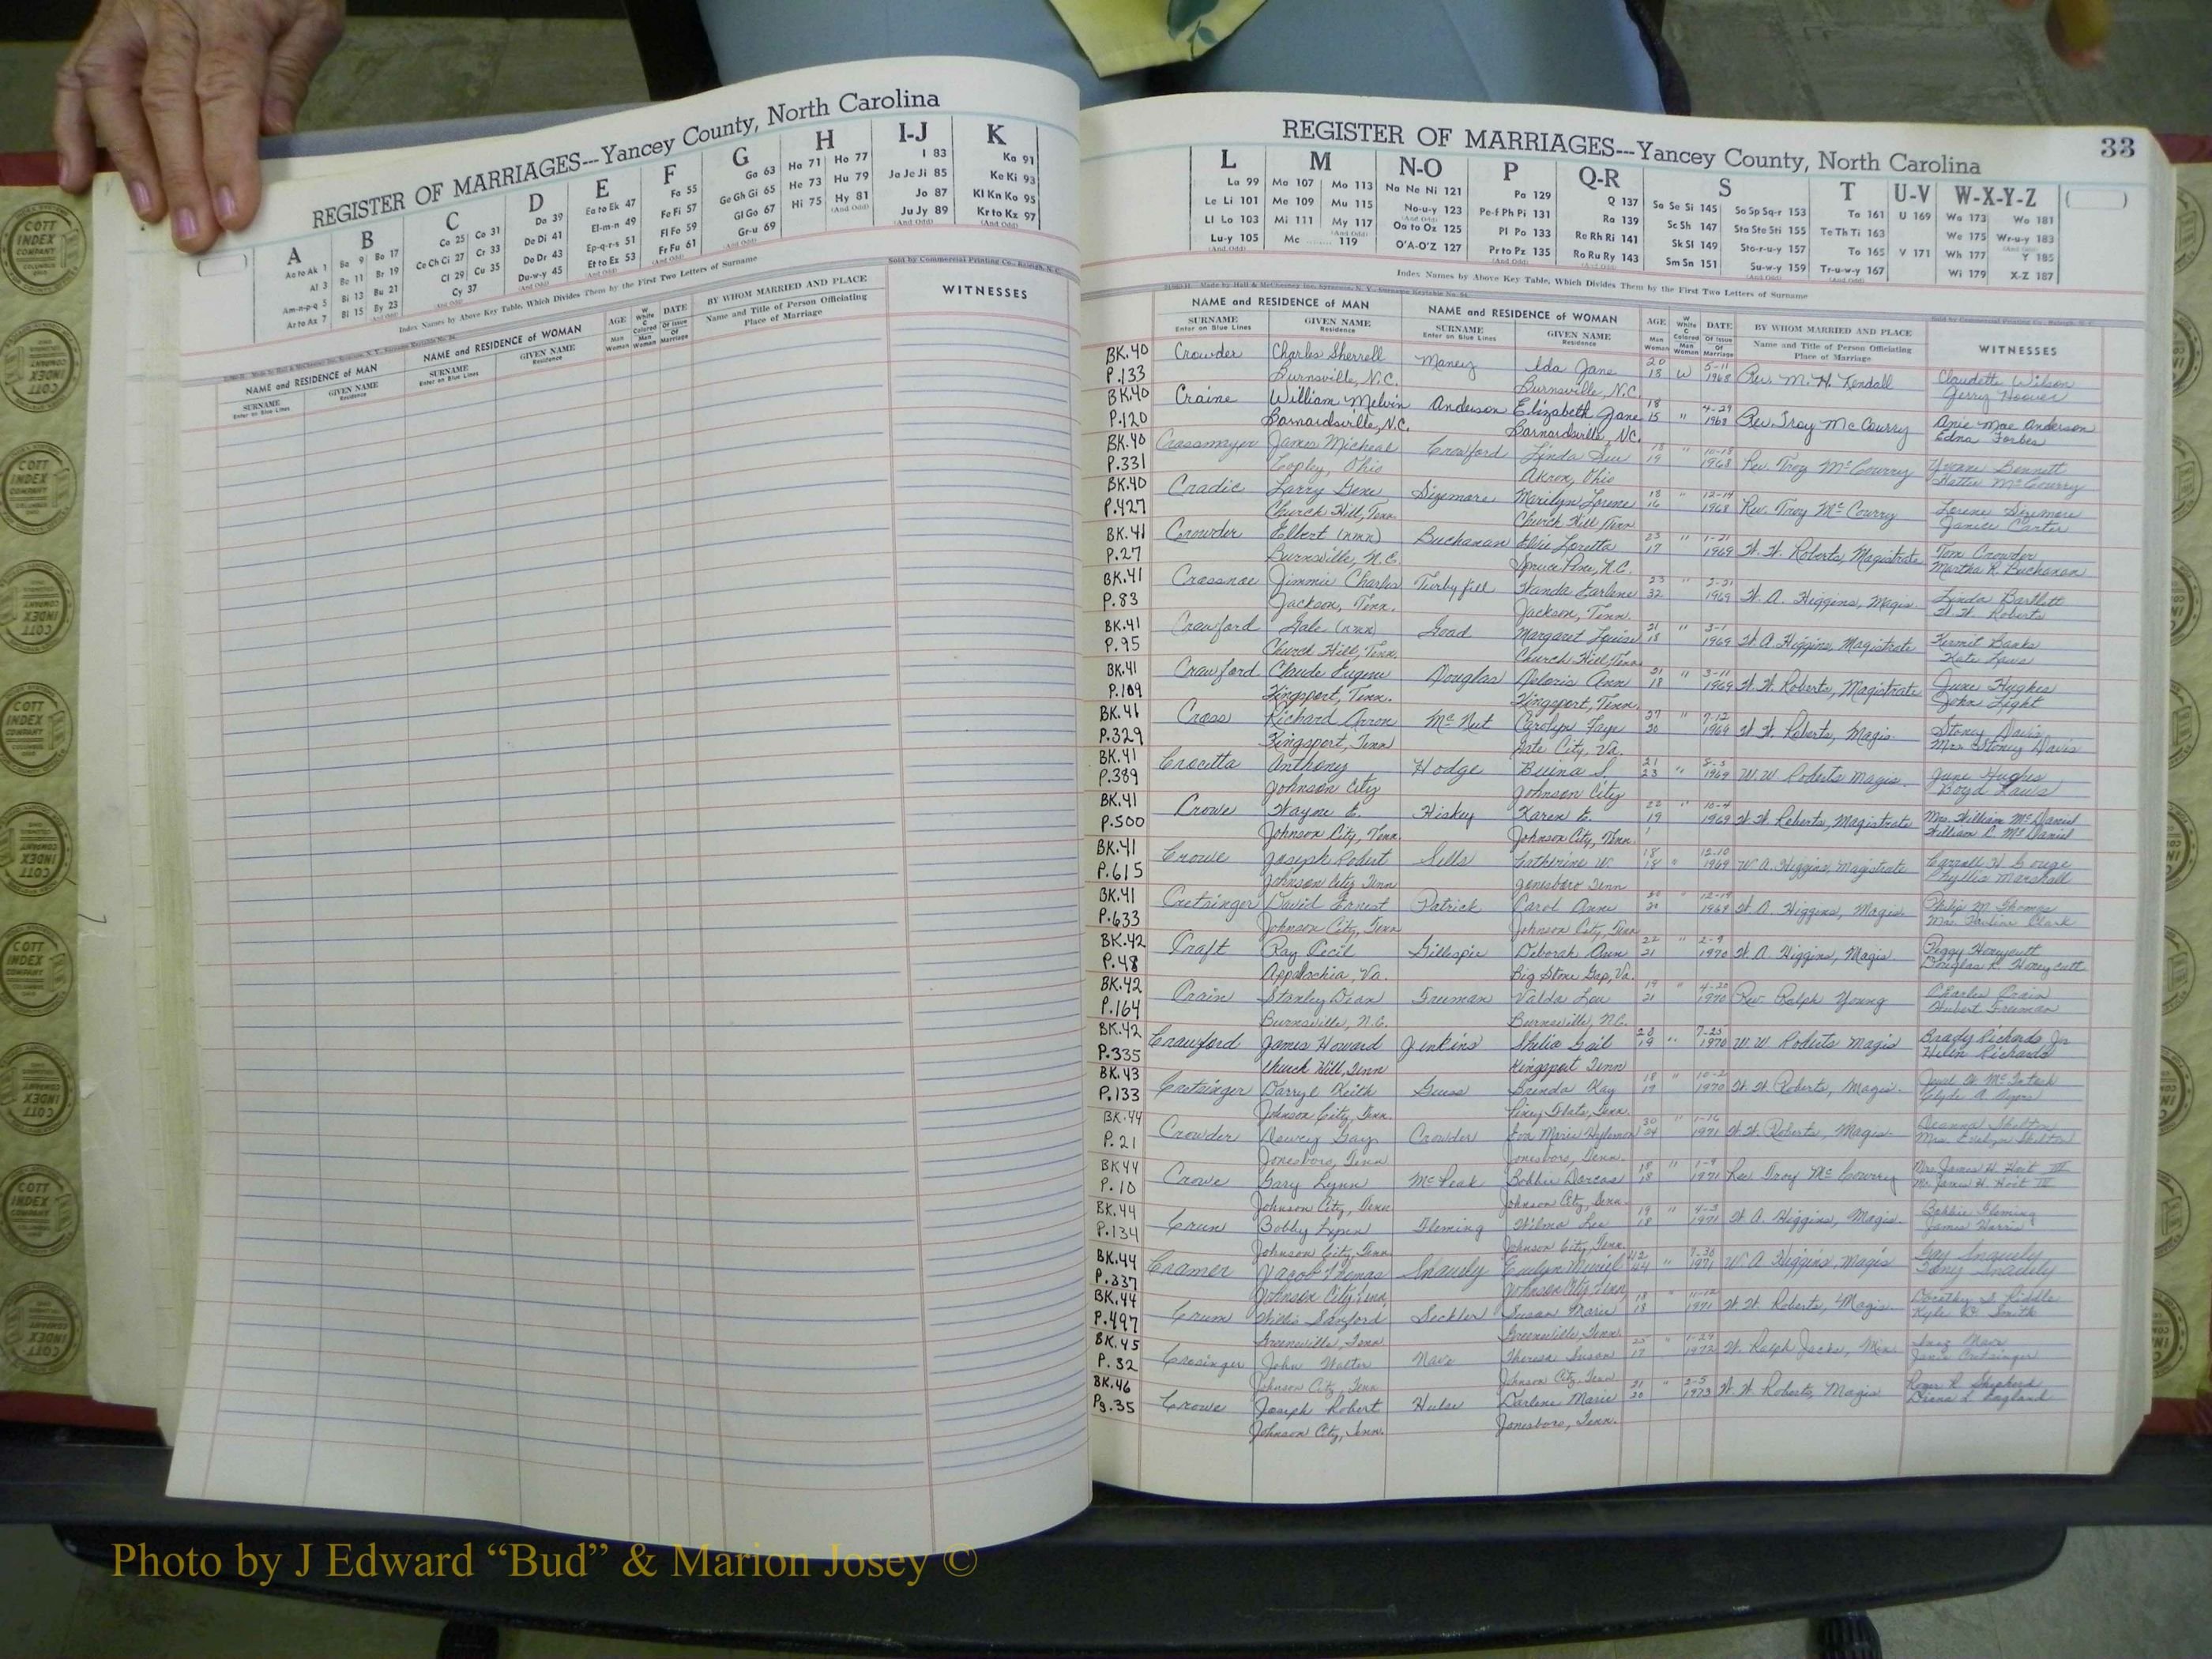 REGISTER OF MARRIAGES---Yancey County, North Carolina
A B C D E F G H I-J K
Aa to Ak 1 Ba 9 Bo 17 Ca 25 Co 31 Da 39 Ea to Ek 47 Fa 55 Ga 63 Ha 71 Ho 77 I 83 Ka 91
Al 3 Be 11 Br 19 Ce Ch Ci 27 Cr 33 De Di 41 El-m-n 49 Fe Fi 57 Ge Gh Gi 65 He 73 Hu 79 Ja Je Ji 85 Ke Ki 93
Am-n-p-q 5 Bi 13 Bu 21 Cl 29 Cu 35 Do Dr 43 Ep-q-r-s 51 Fl Fo 59 Gl Go 67 Hi 75 Hy 81 Jo 87 Kl Kn Ko 95
Ar to Az 7 Bl 15 By 23 Cy 37 Du-w-y 45 Et to Ez 53 Fr Fu 61 Gr-u 69 Ju Jy 89 Kr to Kz 97
Index Names by Above Key Table, Which Divides Them by the First Two Letters of Surname
Sold by Commercial Printing Co., Raleigh, N. C.
NAME and RESIDENCE OF MAN NAME and RESIDENCE of WOMAN AGE DATE BY WHOM MARRIED AND PLACE WITNESSES
SURNAME GIVEN NAME SURNAME GIVEN NAME Name and Title of Person Officiating
Enter on Blue Lines Residence Enter on Blue Lines Residence Place of Marriage
REGISTER OF MARRIAGES---Yancey County, North Carolina 33
L M N-O P Q-R S T U-V W-X-Y-Z
La 99 Ma 107 Mo 113 Na Ne Ni 121 Pa 129 Q 137 Sa Se Si 145 So Sp Sq-r 153 Ta 161 U 169 Wa 173 Wo 181
Le Li 101 Me 109 Mu 115 No-u-y 123 Pe-f Ph Pi 131 Ra 139 Sc Sh 147 Sta Ste Sti 155 Te Th Ti 163 We 175 Wr-u-y 183
Ll Lo 103 Mi 111 My 117 Oa to Oz 125 Pl Po 133 Re Rh Ri 141 Sk Sl 149 Sto-r-u-y 157 To 165 V 171 Wh 177 Y 185
Lu-y 105 Mc 119 O'A-O'Z 127 Pr to Pz 135 Ro Ru Ry 143 Sm Sn 151 Su-w-y 159 Tr-u-w-y 167 Wi 179 X-Z 187
Index Names by Above Key Table, Which Divides Them by the First Two Letters of Surname
NAME and RESIDENCE OF MAN NAME and RESIDENCE of WOMAN AGE DATE BY WHOM MARRIED AND PLACE WITNESSES
SURNAME GIVEN NAME SURNAME GIVEN NAME Name and Title of Person Officiating
Enter on Blue Lines Residence Enter on Blue Lines Residence Place of Marriage
BK.40 Crowder Charles Sherrell Maney Ida Jane 20 W 5-11 Rev. M. H. Kendall Claudette Wilson
P.133 Burnsville, N.C. Burnsville, N.C. 18 1968 Gerry Hoover
BK.40 Craine William Melvin Anderson Elizabeth Jane 18 " 4-29 Rev. Troy McCourry Anie Mae Anderson
P.120 Barnardsville, N.C. Barnardsville, N.C. 15 1968 Edna Forbes
BK.40 Crossmyer James Micheal Crawford Linda Sue " Rev. Troy McCourry Yvonne Bennett
P.331 Copley, Ohio Akron, Ohio 19 1968 Hattie McCourry
BK.40 Cradic Larry Gene Sizemore Marilyn Lorene 18 " 12-14 Rev. Troy McCourry Lorene Sizemore
P.427 Church Hill, Tenn. Church Hill, Tenn. 16 1968 Janice Carter
BK.41 Crowder Elbert (nmn) Buchanan Elsie Loretta 23 " 1-21 W. W. Roberts, Magistrate Tom Crowder
P.27 Burnsville, N.C. Spruce Pine, N.C. 17 1969 Martha R. Buchanan
BK.41 Crossnoe Jimmie Charles Turbyfill Wanda Earlene 23 " 2-21 W. A. Higgins, Magis. Linda Bartlett
P.83 Jackson, Tenn. Jackson, Tenn. 32 1969 W. W. Roberts
BK.41 Crawford Gale (nmn) Goad Margaret Louise 21 " 3-1 W. A. Higgins, Magistrate Kermit Banks
P.95 Church Hill, Tenn. Church Hill, Tenn. 18 1969 Kate Laws
BK.41 Crawford Claude Eugene Douglas Deloris Ann 21 " 3-11 W. W. Roberts, Magistrate June Hughes
P.109 Kingsport, Tenn. Kingsport, Tenn. 18 1969 John Light
BK.41 Cross Richard Arron McNut Carolyn Faye 27 " 7-12 W. W. Roberts, Magis. Stoney Davis
P.329 Kingsport, Tenn. Gate City, Va. 20 1969 Mrs. Stoney Davis
BK.41 Crocitta Anthony Hodge Buina S. 21 " 8-3 W. W. Roberts Magis. June Hughes
P.389 Johnson City Johnson City 23 1969 Boyd Laws
BK.41 Crowe Wayne E. Hickey Karen E. 22 " 10-4 W. W. Roberts, Magistrate Mrs. William McDaniel
P.500 Johnson City, Tenn. Johnson City, Tenn. 19 1969 William C. McDaniel
BK.41 Crowe Joseph Robert Sells Catherine W. 18 " 12-10 W. A. Higgins, Magistrate Carroll V. Gouge
P.615 Johnson City Tenn Jonesboro Tenn 18 1969 Phyllis Marshall
BK.41 Cretsinger David Ernest Patrick Carol Anne W. A. Higgins, Magis. Philip M. Thomas
P.633 Johnson City, Tenn Johnson City, Tenn 1969 Mrs. Pauline Clark
BK.42 Craft Ray Cecil Gillespie Deborah Ann 22 " 2-9 W. A. Higgins, Magis Peggy Honeycutt
P.48 Appalachia, Va. Big Stone Gap, Va. 21 1970 Douglas R. Honeycutt
BK.42 Crain Stanley Dean Freeman Valda Lea 19 " 4-20 Rev. Ralph Young Charles Crain
P.164 Burnsville, N.C. Burnsville, N.C. 21 1970 Hubert Freeman
BK.42 Crawford James Howard Jenkins Shelia Gail 20 " 7-25 W W Roberts Magis Brady Richards Jr
P.335 Church Hill, Tenn Kingsport Tenn 19 1970 Helen Richards
BK.43 Cretsinger Darryl Keith Guess Brenda Kay 18 " 10-2 W. W. Roberts, Magis.
P.133 Johnson City, Tenn. Piney Flats, Tenn. 19 1970 Clyde A. Ayers
BK.44 Crowder Dewey Gay Crowder Eva Marie 30 " 1-16 W. W. Roberts, Magis. Deanna Shelton
P.21 Jonesboro, Tenn Jonesboro, Tenn. 24 1971 Mrs. Evelyn Shelton
BK44 Crowe Gary Lynn McPeak Bobbie Dorcas 18 " 1-9 Rev Troy McCourry Mrs. James H. Hoit III
P.10 Johnson City, Tenn Johnson City, Tenn. 18 1971 Mr. James H. Hoit III
BK.44 Crum Bobby Lynn Fleming Wilma Lee 19 " 4-3 W. A. Higgins, Magis. Bobbie Fleming
P.134 Johnson City, Tenn Johnson City, Tenn. 18 1971 James Harris
BK.44 Cramer Jacob Thomas Snavely Evelyn Muriel 42 " 7-30 W. A. Higgins, Magis Gay Snavely
P.337 Johnson City, Tenn Johnson City Tenn 44 1971 Tony Snavely
BK.44 Crum Willis Sanford Seckler Susan Marie 18 " 11-12 W. W. Roberts, Magis. Dorothy S. Riddle
P.497 Greeneville, Tenn Greeneville, Tenn. 18 1971 Kyle D. Smith
BK.45 Crosinger John Walter Nave Theresa Susan " 1-29 W. Ralph Jacks, Min. Inez Nave
P.32 Johnson City, Tenn Johnson City, Tenn 17 1972 Janie Cretsinger
BK.46 Crowe Joseph Robert Hulse Darlene Marie 21 " 2-5 W. W. Roberts, Magis Roger R. Shepherd
Pg.35 Johnson City, Tenn. Jonesboro, Tenn. 20 1973 Diana L. England
COTT INDEX COMPANY COLUMBUS OHIO
Photo by J Edward “Bud” & Marion Josey ©